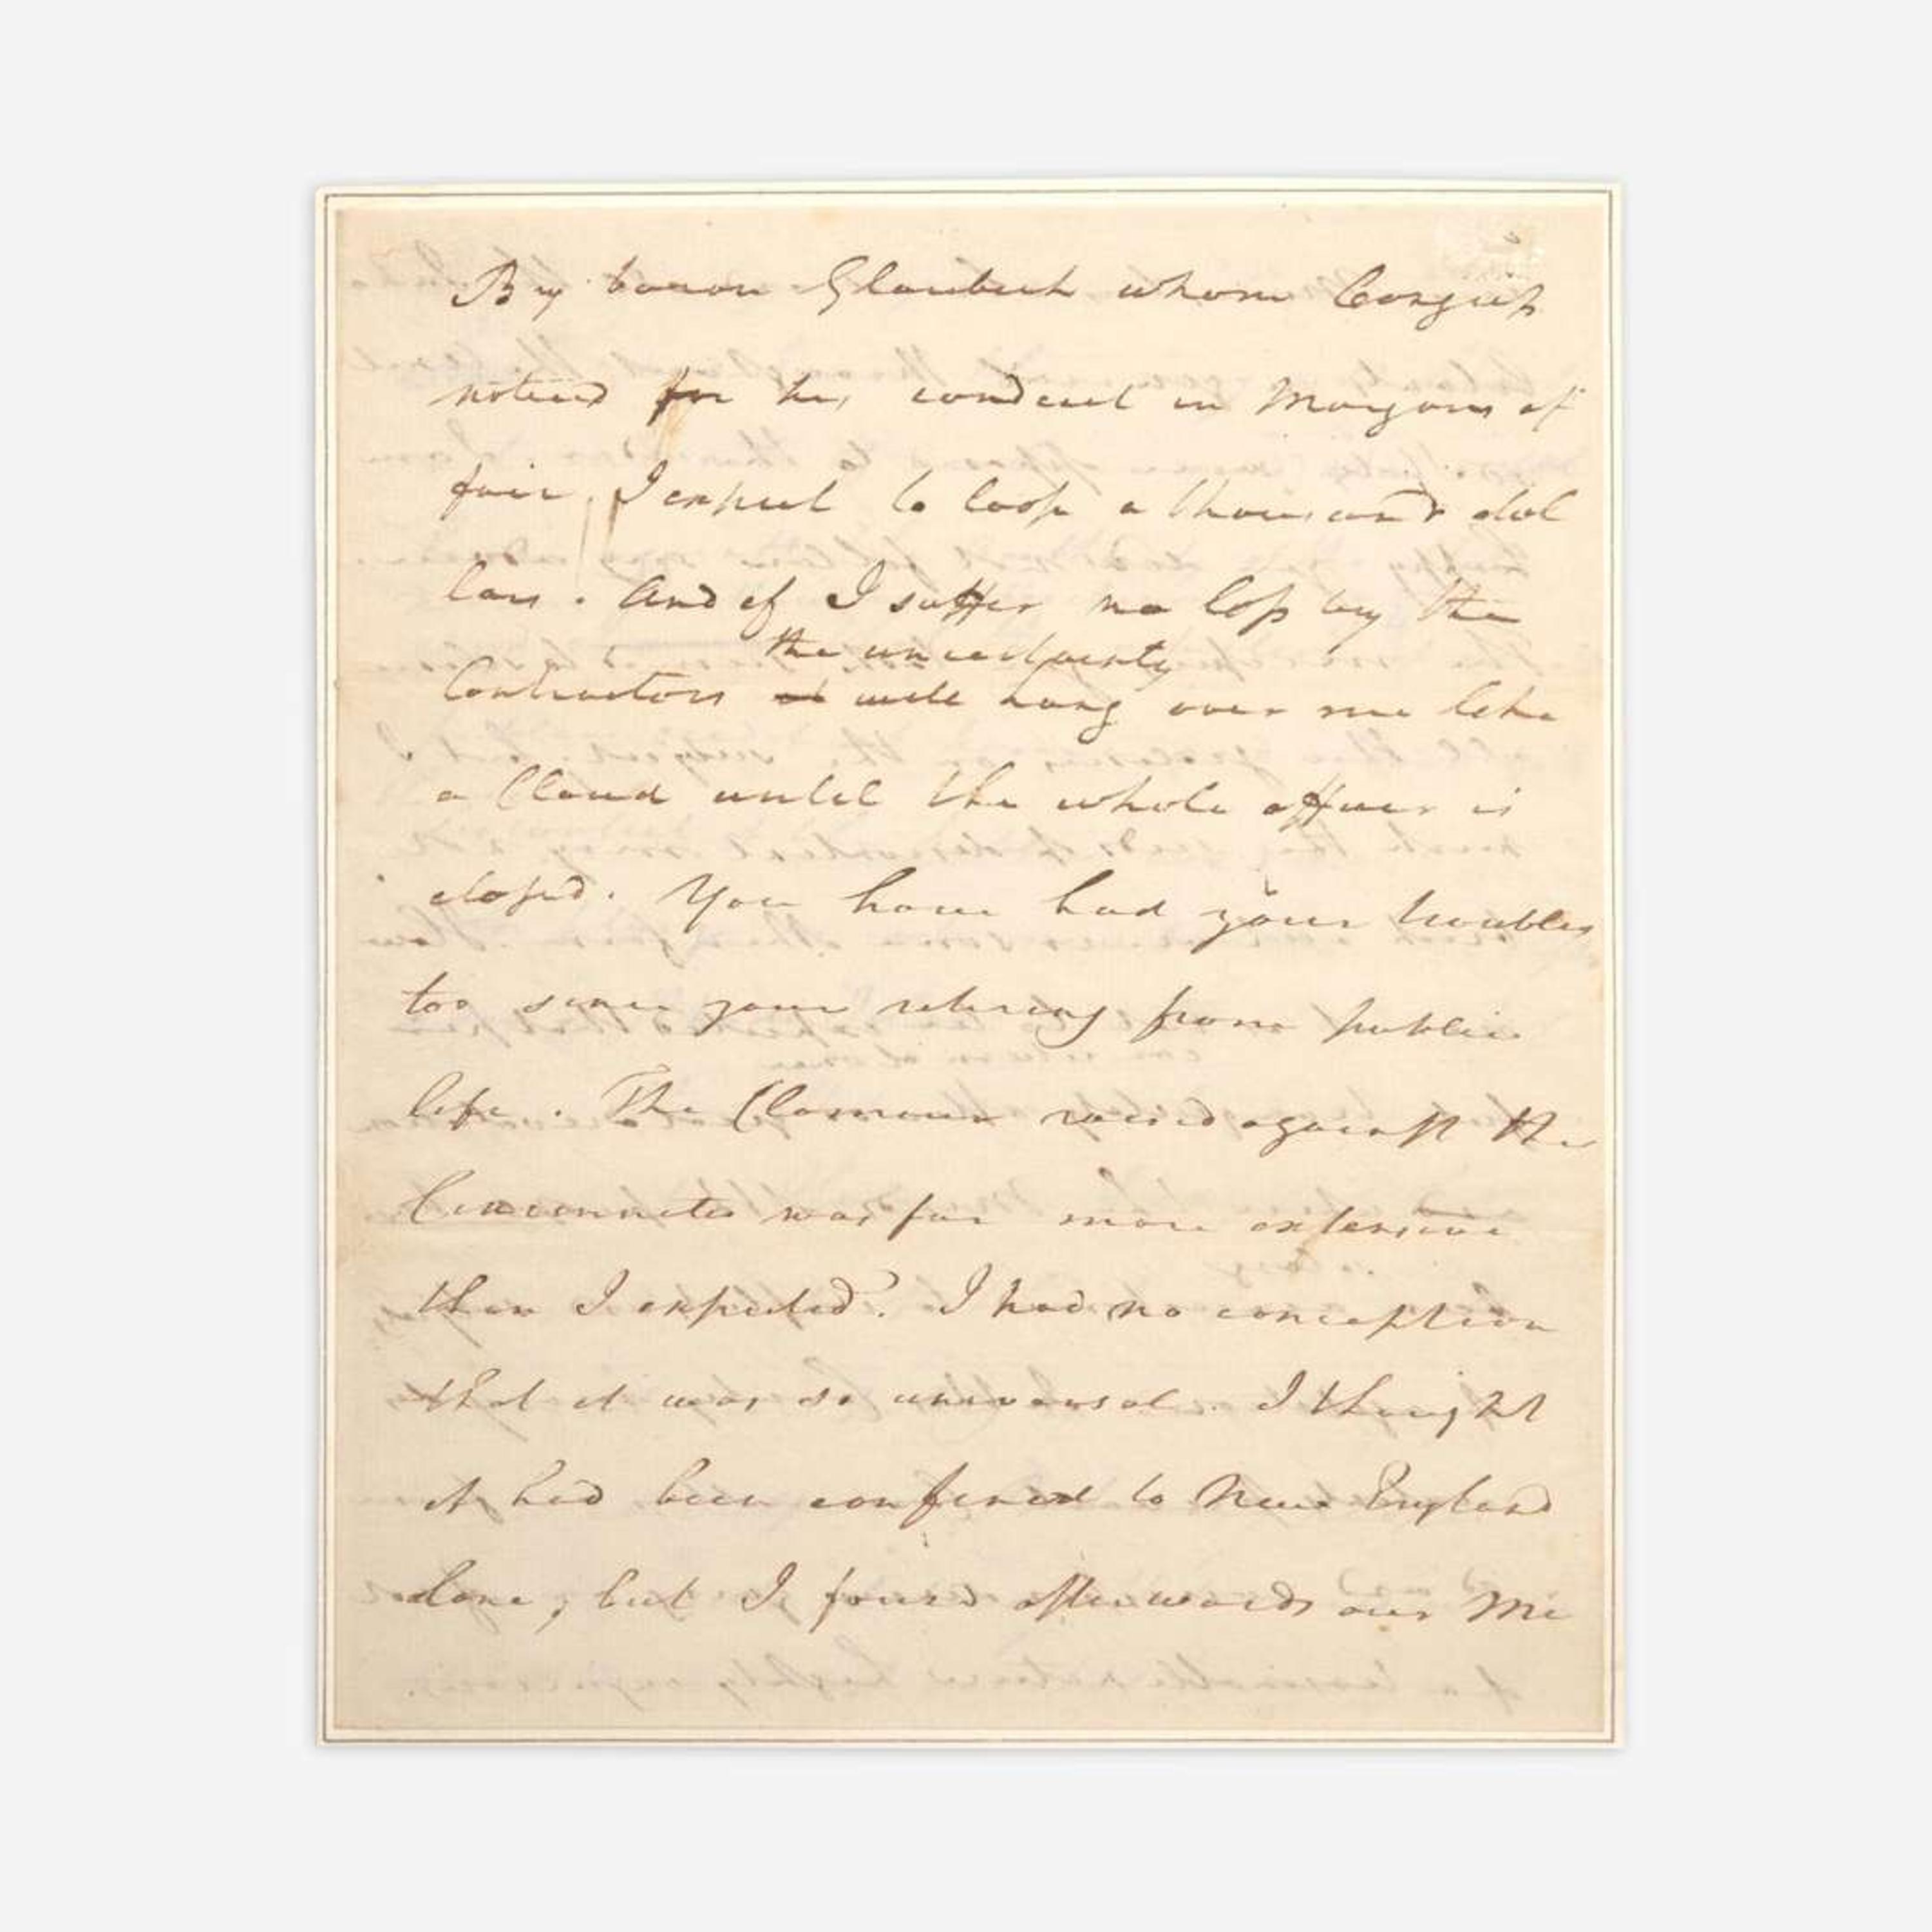 By baron Glaubeck whom Congress
noticed for his conduct in Morgans af
fair, I expect to loose a thousand dol
lars. And if I suffer no loss by the
the uncertainty
Contractors it will hang over me like
a Cloud until the whole affair is
closed. You have had your troubles
too since your retiring from public
life. The Clamour raised against the
Cincinnate was far more extensive
than I expected. I had no conception
that it was so universal. I thought
it had been confined to New England
alone; but I found afterwards our Mi